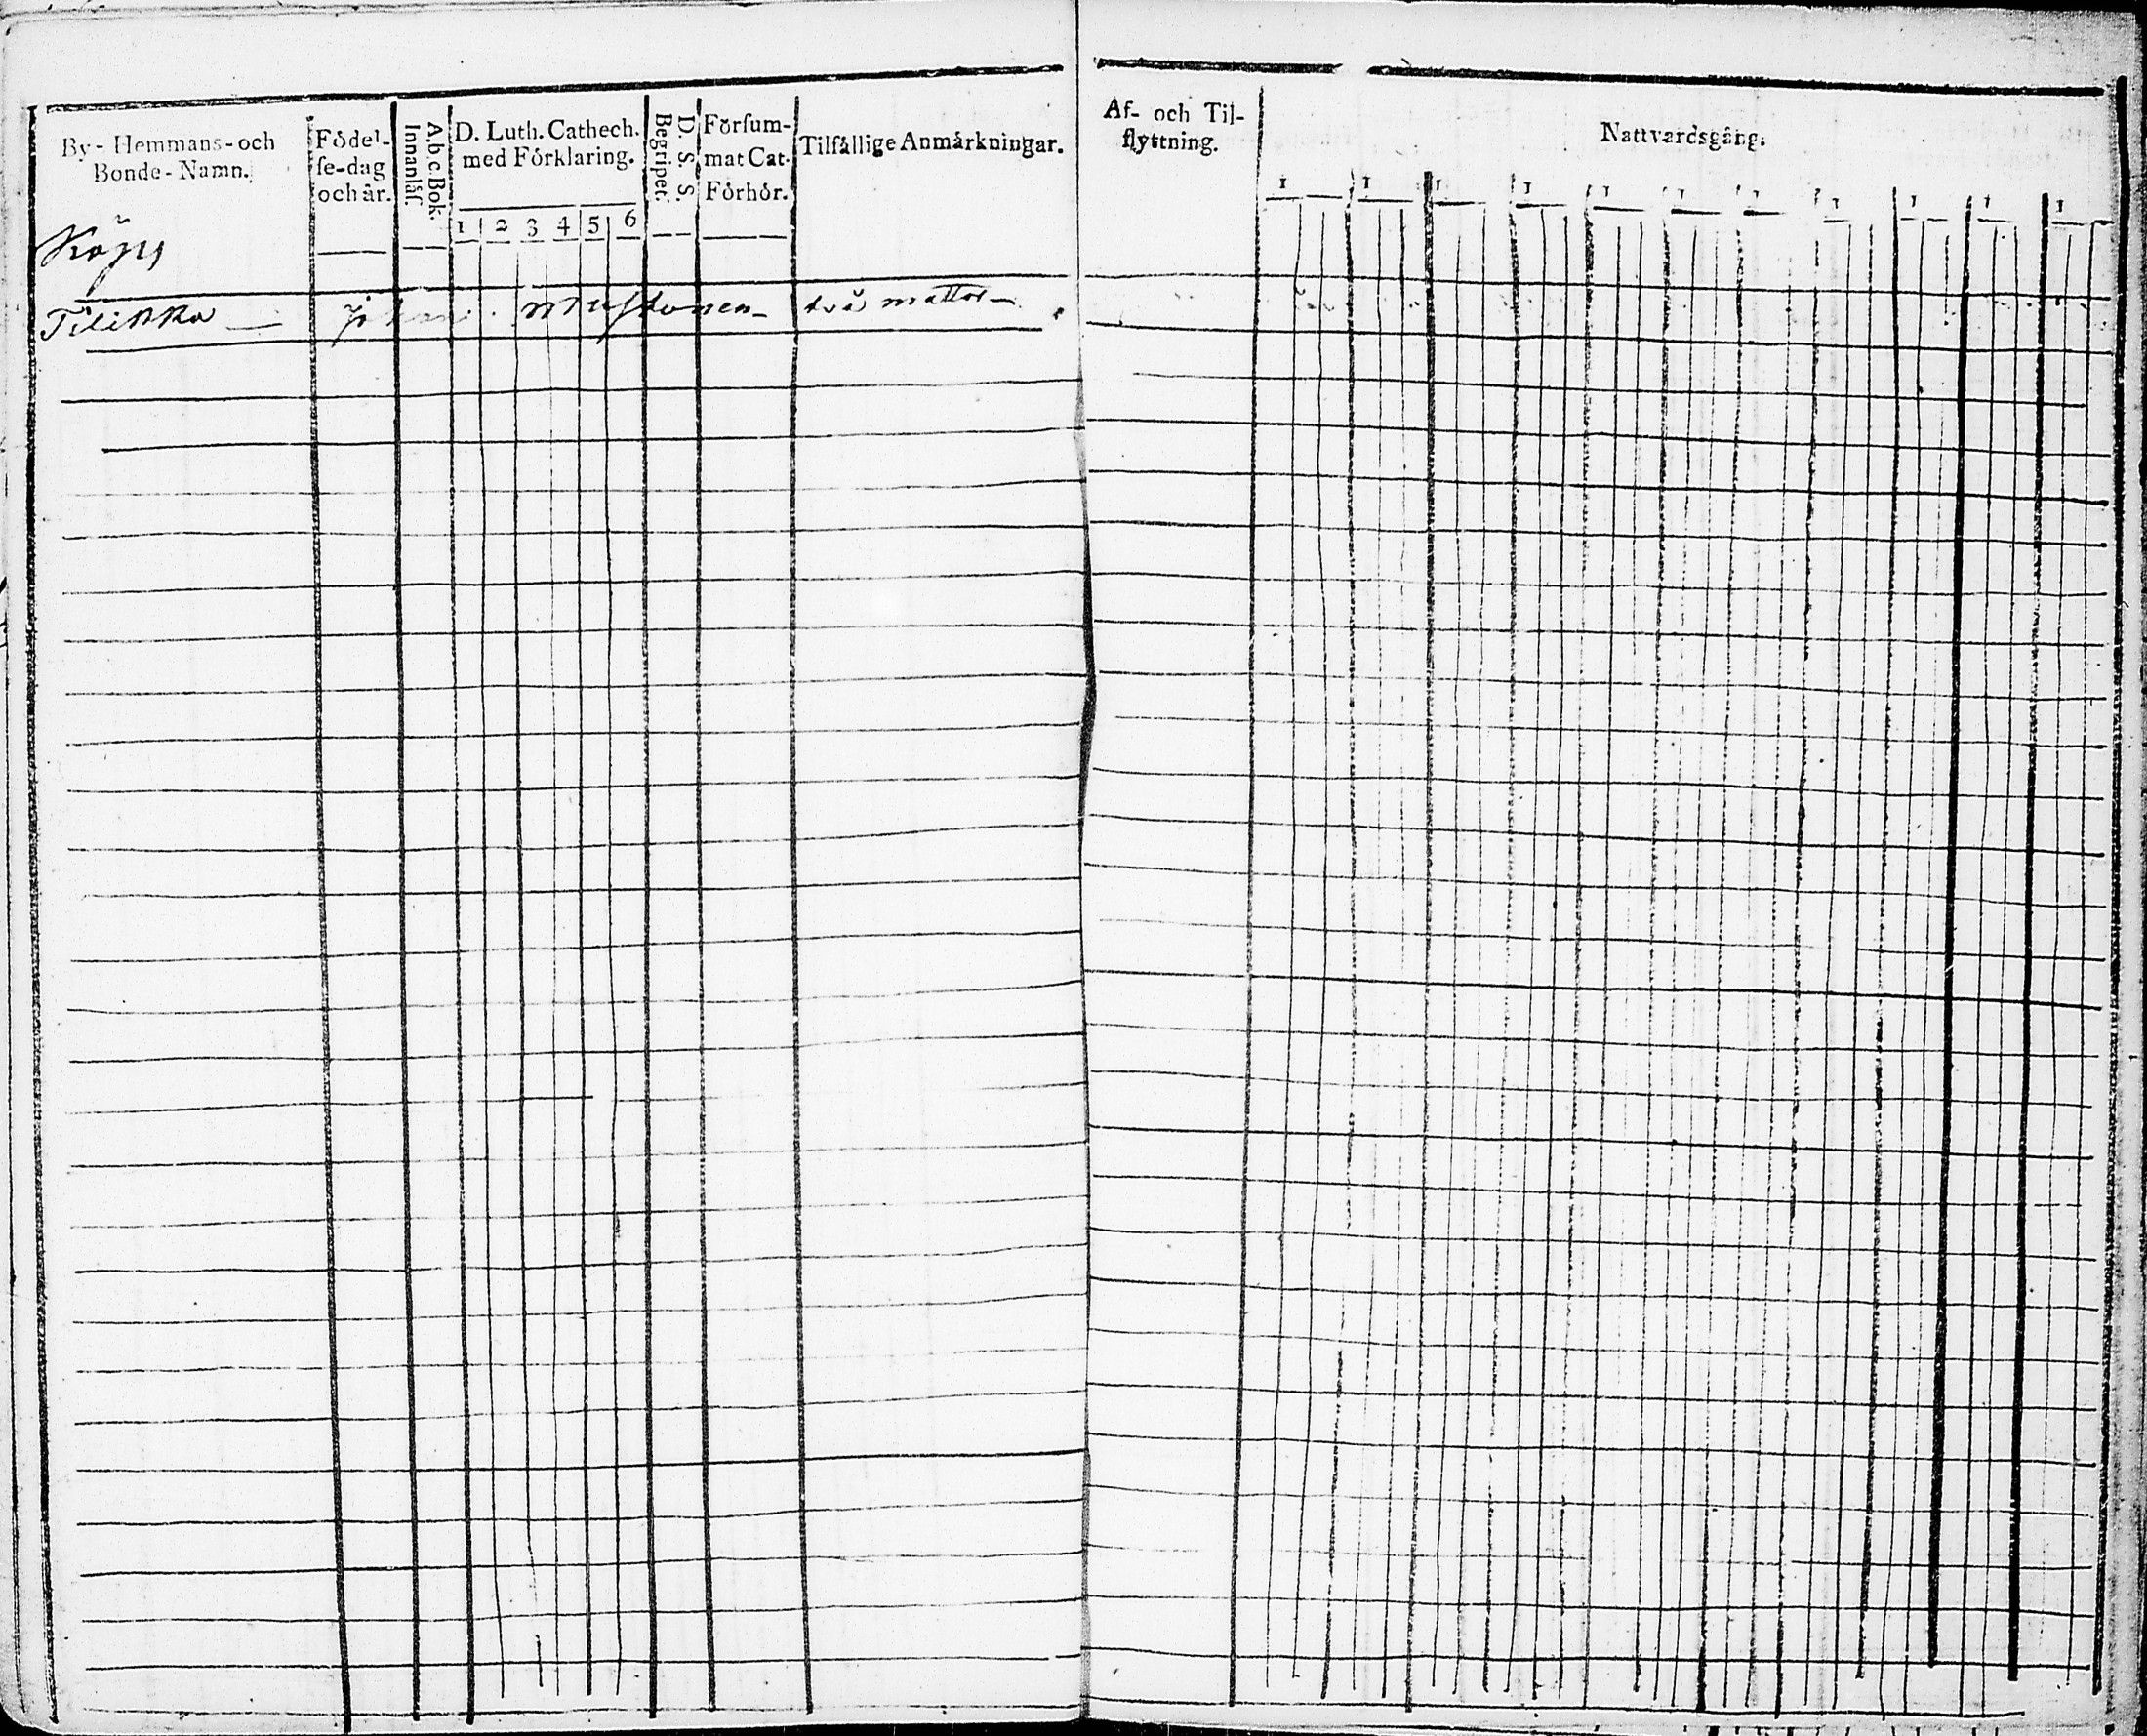 By- Hemmans- och
Bonde- Namn.
Födel-
se-dag
och år.
A.b.c.Bok.
Innanläs.
D. Luth. Cathech.
med Förklaring.
1 2 3 4 5 6
D. S. S.
Begripet.
Försum-
mat Cat.
Förhör.
Tilfällige Anmärkningar.
Af- och Til-
flyttning.
Nattvardsgång.
1 1 1 1 1 1 1 1 1 1 1
Tilikka Johan Mustonen två mattor